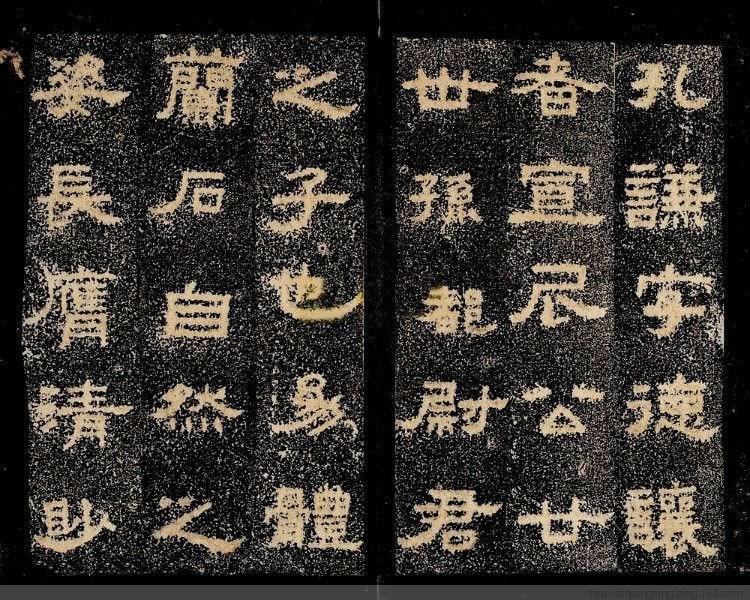 孔謙字德讓
者宣尼公廿
世孫都尉君
之子也幼體
蘭石自然之
姿長膺清妙